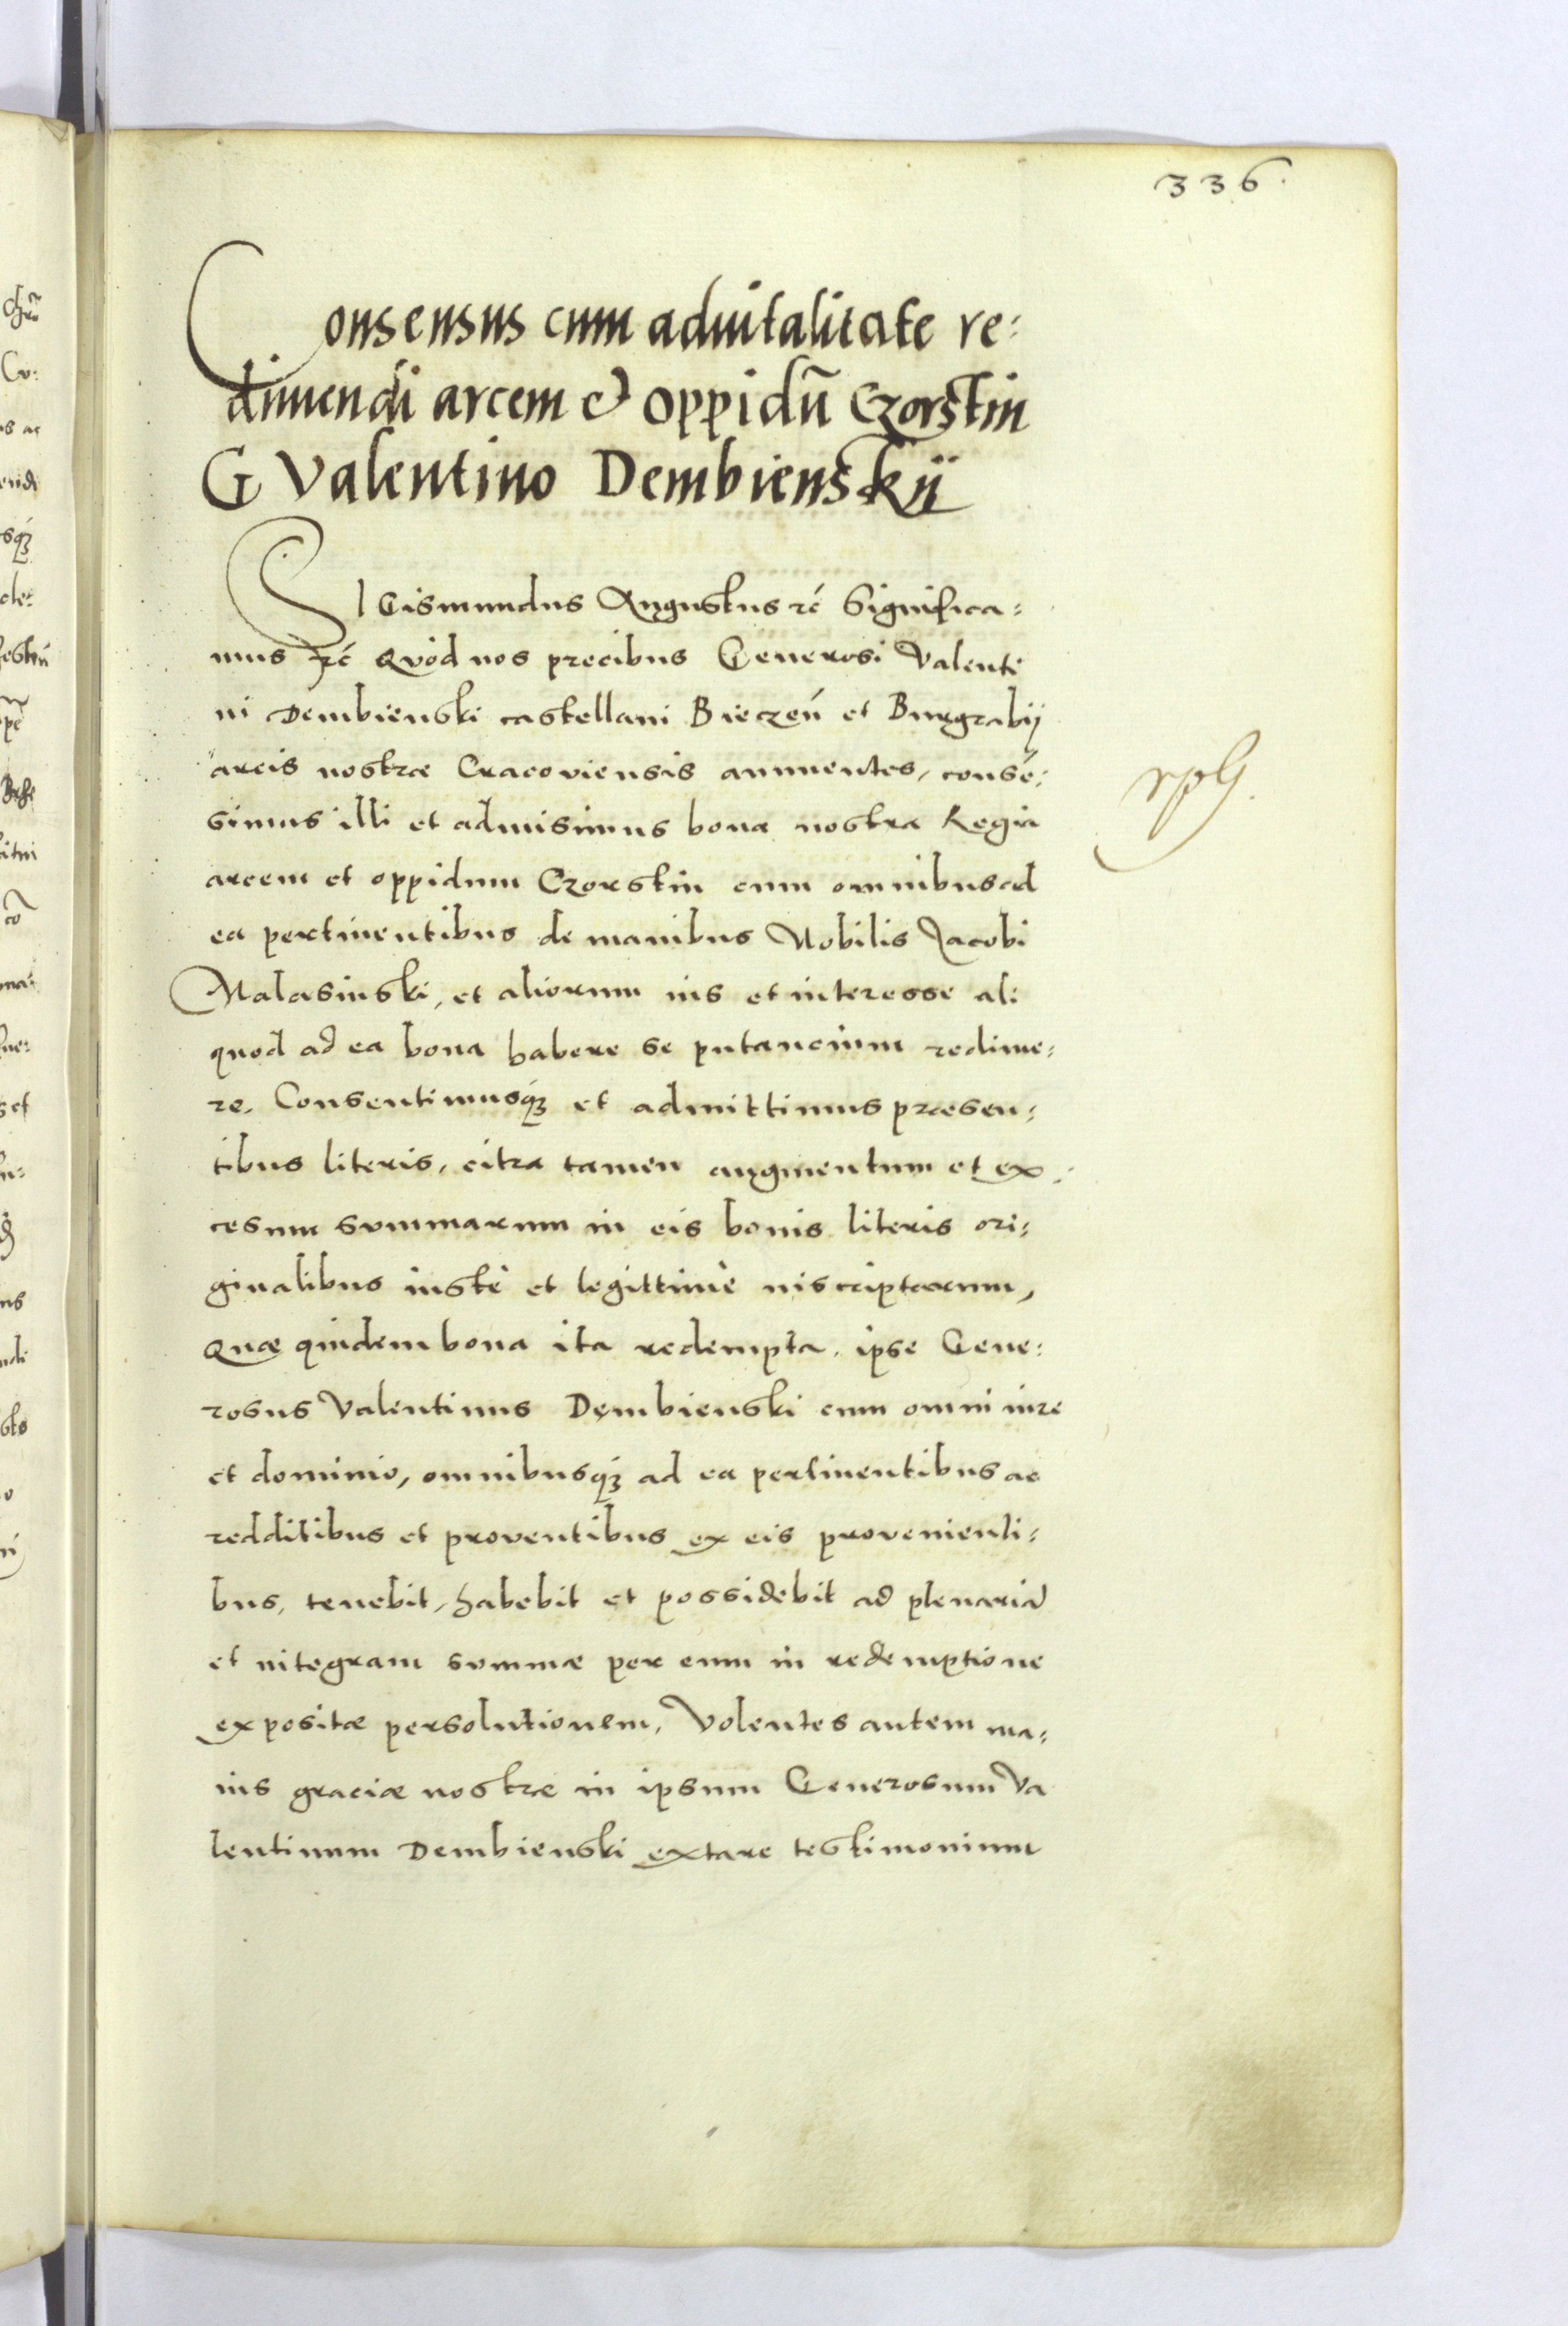 336.
Consensus cum advitalitate re:
dimendi arcem et oppidū Czorstin
G Valentino Dembienskij
SIGismundus Augustus rć Significa:
mus rć Quòd nos precibus Generosi Valenti
ni Dembienski castellani Bieczeń et Burgrabij
arcis nostræ Cracoviensis annuentes, consē:
simus illi et admisimus bona nostra Regia
arcem et oppidum Czorstin cum omnibus ad
ea pertinentibus de manibus Nobilis Jacobi
Malasinski, et aliorum ius et interesse ali
quod ad ea bona habere se putancium redime:
re. Consentimusq3 et admittimus præsen:
tibus literis, citra tamen augmentum et ex
cesum summarum in eis bonis literis ori:
ginalibus iustè et legittimè inscriptarum,
Quæ quidem bona ita redempta, ipse Gene:
rosus Valentinus Dembienski cum omni iure
et dominio, omnibusq3 ad ea pertinentibus ac
redditibus et proventibus ex eis provenienti:
bus, tenebit, habebit et possidebit ad plenariā
et integram summæ per eum in redemptione
expositæ persolutionem, Volentes autem ma:
ius graciæ nostræ in ipsum Generosum Va
lentinum Dembienski extare testimonium